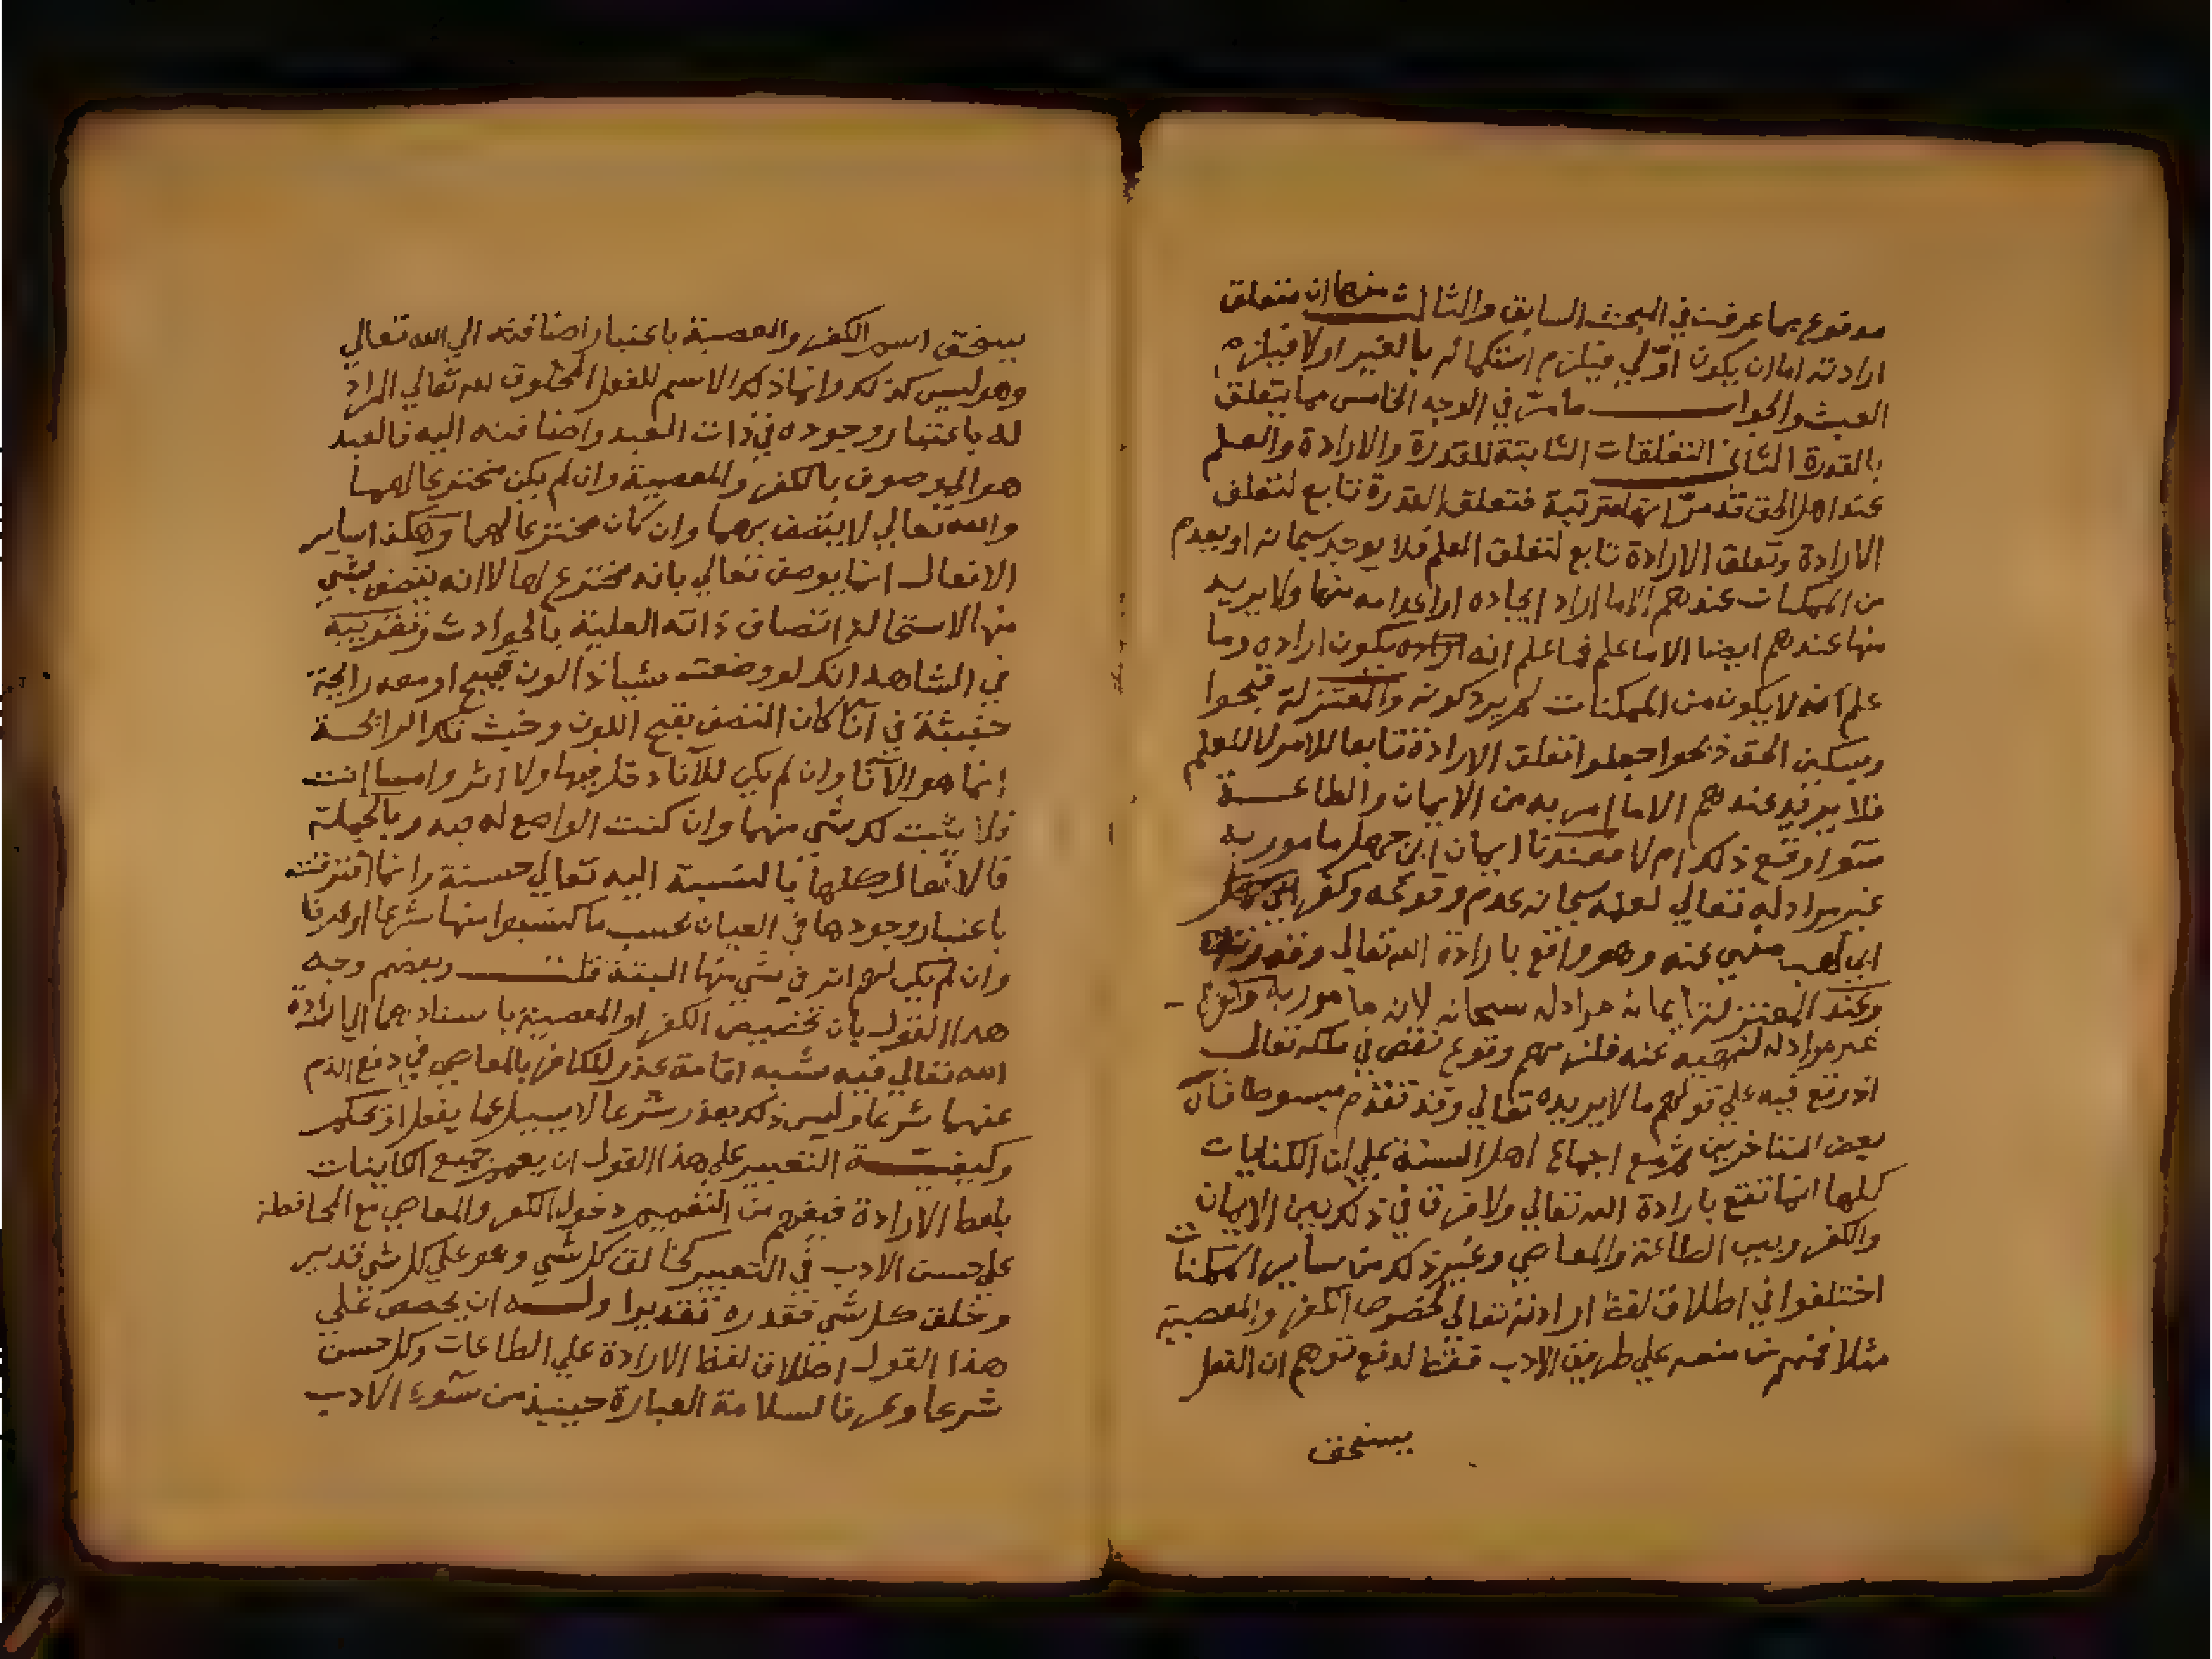 مدفوع بما عرفت في البحث السابق والثالث منهما ان متعلق
ارادته اما ان يكون اولي فيلزم استكماله بالغير اولا فيلزم
العبث والجواب ما مر في الوجه الخامس مما يتعلق
بالقدرة الثاني التعلقات الثابتة للقدرة والارادة والعلم
عند اهل الحق قد مر انها مترتبة فتعلق القدرة تابع لتعلق
الارادة وتعلق الارادة تابع لتعلق العلم فلا يوجد سبحانه او يعدم
من الممكنات عندهم الا ما اراد ايجاده او اعدامه منها ولا يريد
منها عندهم ايضا الا ما علم فما علم انه يكون اراده وما
علم انه لا يكون من الممكنات لم يرد كونه والمعتزلة قبحوا
الحق جعلوا تعلق الارادة تابعا للامر لا للعلم
فلا يريد عندهم الا ما امر به من الايمان والطاعة
سوا وقع ذلك ام لا فعندنا ايمان ابي جهل مامور به
غير مراد له تعالي لعلمه سبحانه عدم وقوعه وكفر
ابي لهب منهي عنه وهو واقع بارادة الله تعالي
وعند المعتزلة ايمانه مراد له سبحانه لانه مامور به
غير مراد له لنهيه عنه فلزمهم وقوع نقص في ملكه تعالي
اذ وقع فيه علي قولهم ما لا يريده تعالي وقد تقدم مبسوطا قال
بعض المتاخرين ثم مع اجماع اهل السنة علي ان الكاينات
كلها انما تقع بارادة الله تعالي ولا فرق في ذلك بين الايمان
والكفر وبين الطاعة والمعاصي وغير ذلك من ساير الممكنات
اختلفوا في اطلاق لفظ ارادته تعالي لخصوص الكفر والمعصية
مثلا فمنهم من منعه علي طريق الادب فقط لدفع توهم ان الفعل
يستحق
يستحق اسم الكفر والمعصية باعتبار اضافته الي الله تعالي
وهو ليس كذلك وانما ذلك الاسم للفعل المخلوق لله تعالي المراد
له باعتبار وجوده في ذات العبد واضافته اليه فالعبد
هو الموصوف بالكفر والمعصية وان لم يكن مخترعا لهما
والله تعالي لا يتصف بهما وان كان مخترعا لهما وهكذا ساير
الافعال انما يوصف تعالي بانه مخترع لها لا انه يتصف بشي
منها لاستحالة اتصاف ذاته العلية بالحوادث وتقريبه
في الشاهد انك لو وضعت شيا ذا لون قبيح او معه رايحة
خبيثة في آنا كان المتصف بقبح اللون وخبث تلك الرايحة
انما هو الآنا وان لم يكن للآنا دخل فيها ولا اثر واما انت
فلا يثبت لك شي منهما وان كنت الواضع له فيه وبالجملة
فالافعال كلها بالنسبة اليه تعالي حسنة وانما افترقت
باعتبار وجودها في العيان بحسب ما اكتسبوا منها شرعا او عرفا
وان لم يكن لهم اثر في شي منها البتة قلت وبعضهم وجه
هذا القول بان تخصيص الكفر او المعصية باسنادهما الي ارادة
الله تعالي فيه شبه اقامة عذر للكافر بالمعاصي في دفع الذم
عنهما شرعا وليس ذلك بعذر شرعا لا يسيل عما يفعل
وكيفية التعبير علي هذا القول ان يعم جميع الكاينات
بلفظ الارادة فيفهم من التعميم دخول الكفر والمعاصي مع المحافظة
علي حسن الادب في التعبير كخالق كل شي وهو علي كل شي قدير
وخلق كل شي فقدره تقديرا وله ان يخص علي
هذا القول اطلاق لفظ الارادة علي الطاعات وكل حسن
شرعا وعرفا لسلامة العبارة حينيذ من سوء الادب